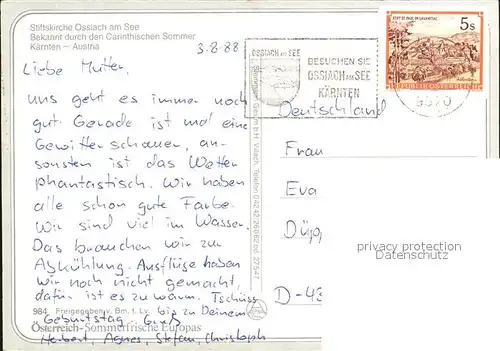 Stiftskirche Ossiach am See
Bekannt durch den Carinthischen Sommer
Kärnten – Austria
3.8.88
Liebe Mutter,
uns geht es immer noch
gut. Gerade ist mal eine
Gewitterschauer, an-
sonsten ist das Wetter
phantastisch. Wir haben
alle schon gute Farbe.
Wir sind viel im Wasser.
Das brauchen wir zur
Abkühlung. Ausflüge haben
wir noch nicht gemacht,
dafür ist es zu warm. Tschüss
bis zu Deinem
Geburtstag. Gruß
Herbert, Agnes, Stefan, Christoph
984 Freigegeben v. Bm. f. Lv.
Österreich - Sommerfrische Europas
Ges.m.b.H. Villach, Telefon 04242/26062 od. 27547
OSSIACH AM SEE
BESUCHEN SIE
OSSIACH AM SEE
KÄRNTEN
5s
STIFT ST. PAUL IM LAVANTTAL
REPUBLIK ÖSTERREICH
Deutschland
Frau
Eva
Düpp
D-43
privacy protection
Datenschutz